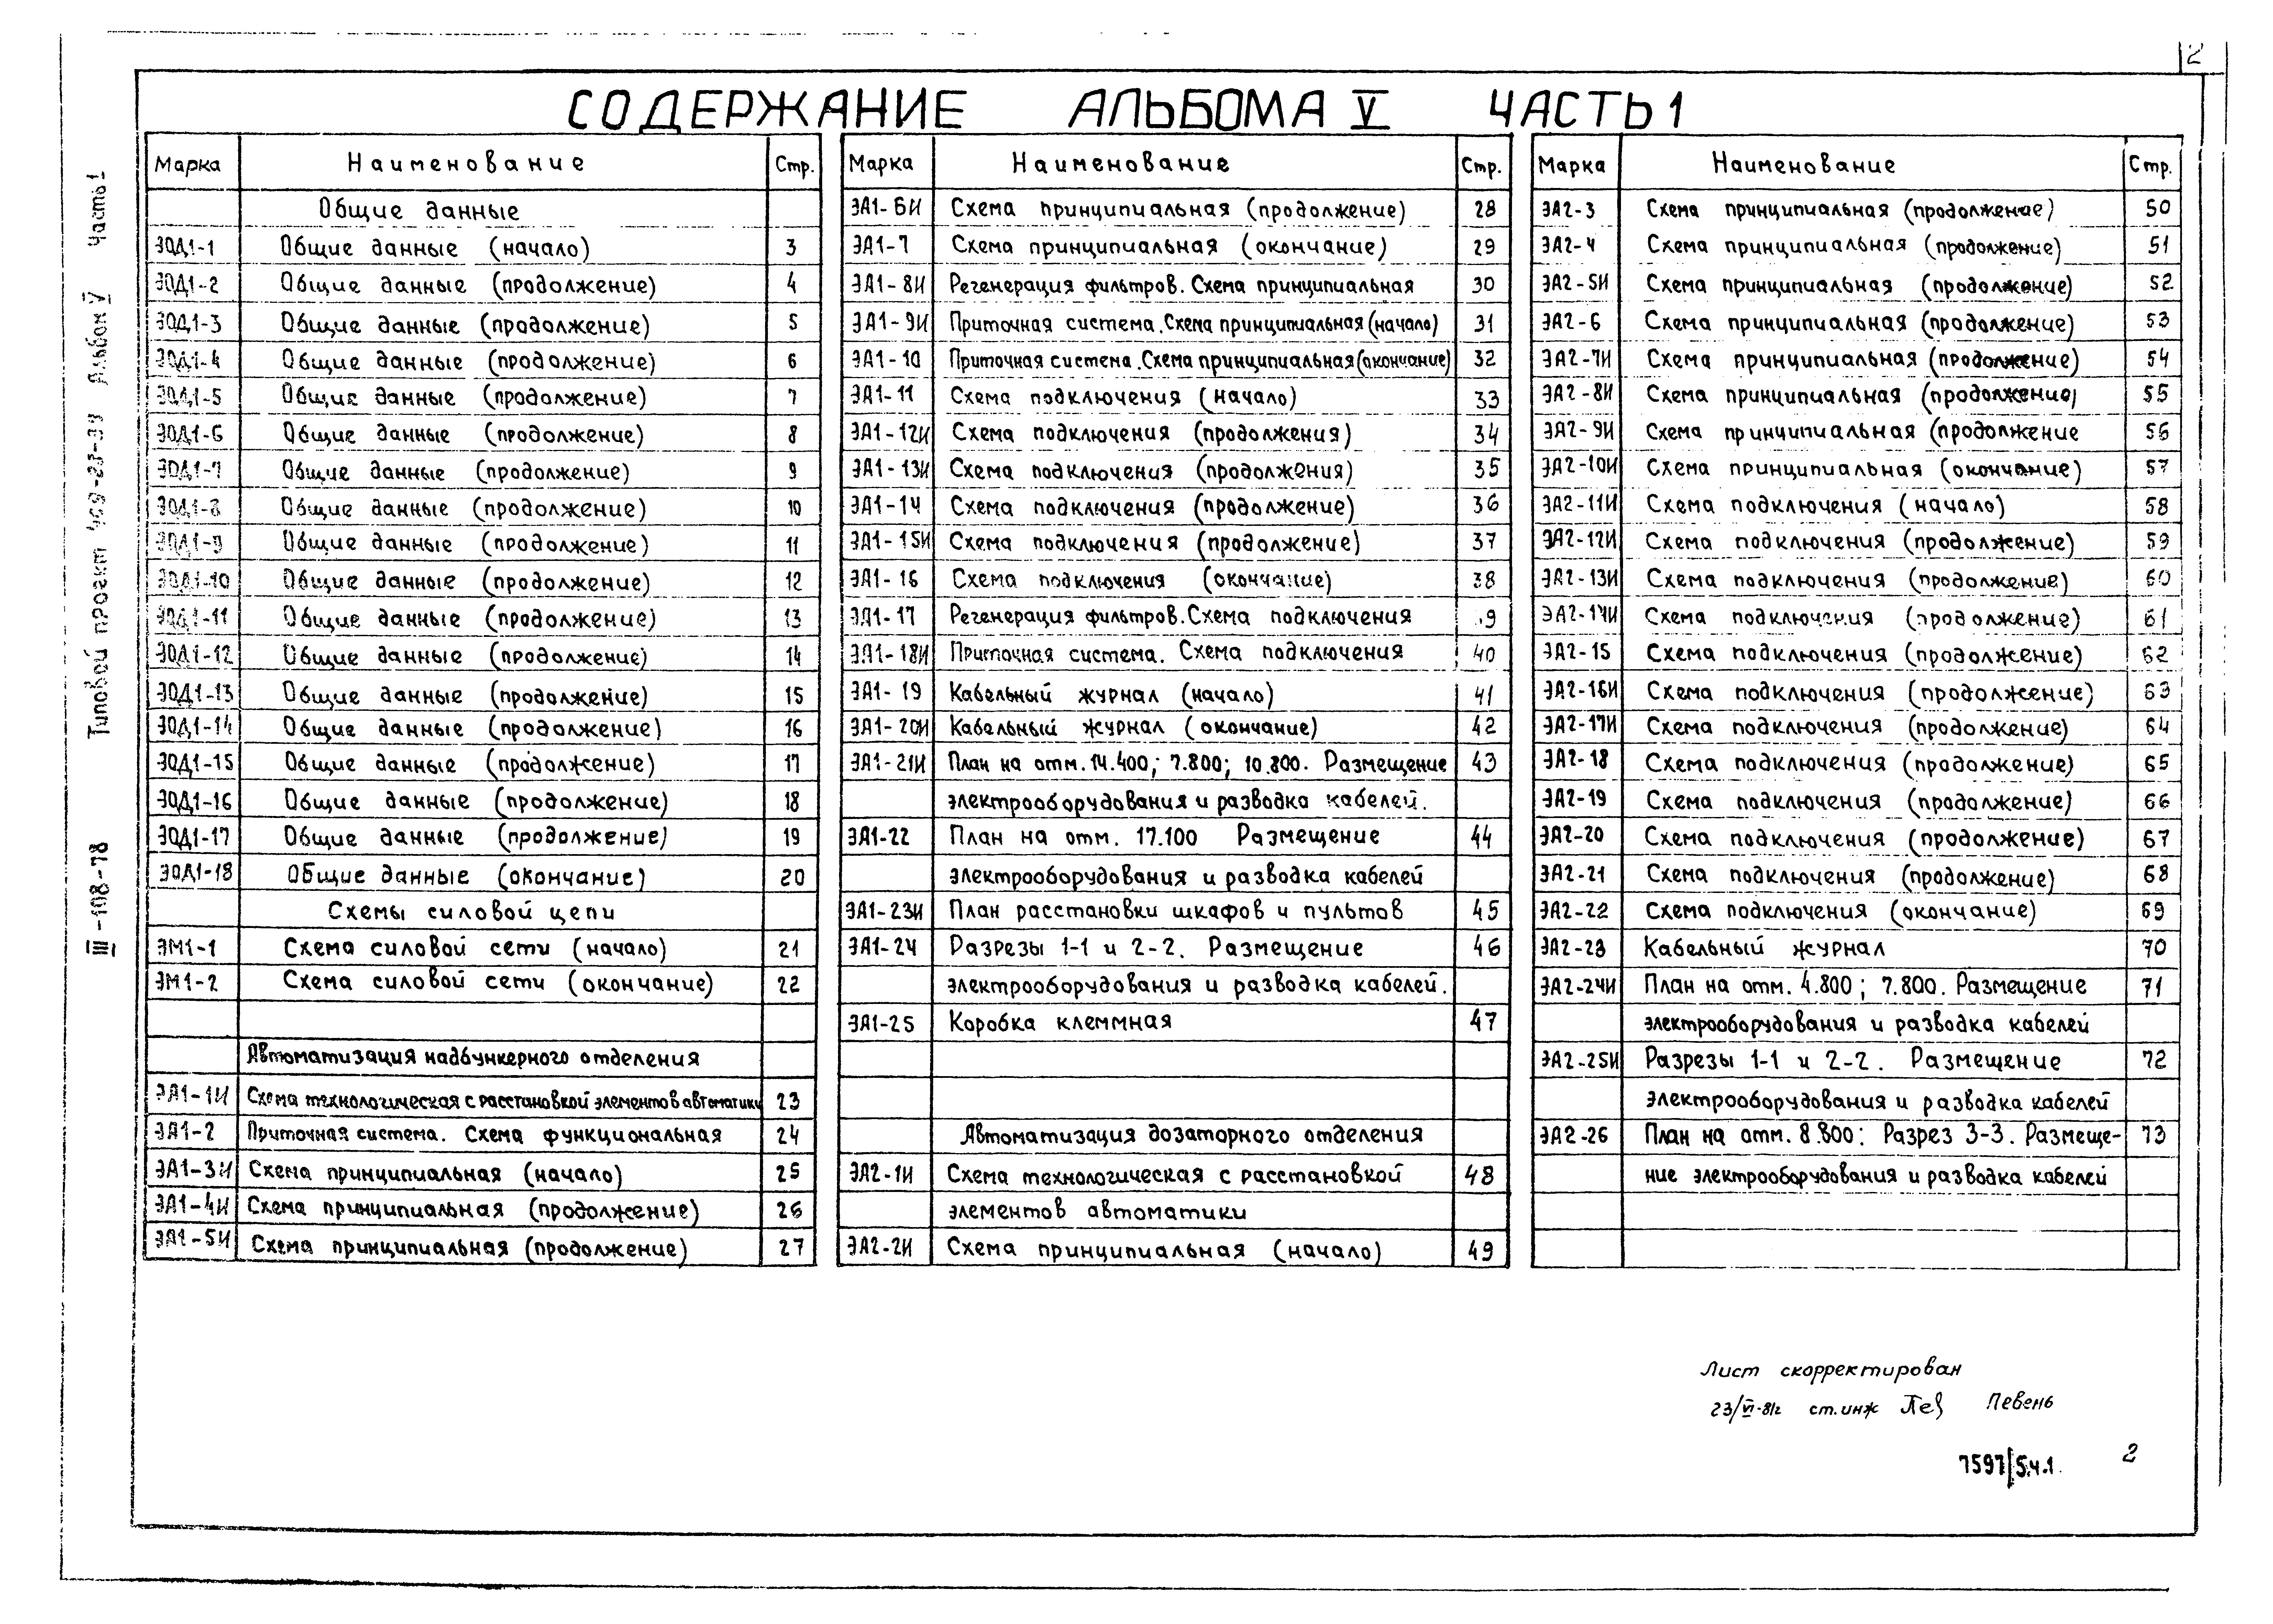 2
СОДЕРЖАНИЕ АЛЬБОМА V ЧАСТЬ 1
Типовой проект 409-23-39 Альбом V Часть 1
III-108-78
Марка Наименование Стр.
Общие данные
ЭОД1-1 Общие данные (начало) 3
ЭОД1-2 Общие данные (продолжение) 4
ЭОД1-3 Общие данные (продолжение) 5
ЭОД1-4 Общие данные (продолжение) 6
ЭОД1-5 Общие данные (продолжение) 7
ЭОД1-6 Общие данные (продолжение) 8
ЭОД1-7 Общие данные (продолжение) 9
ЭОД1-8 Общие данные (продолжение) 10
ЭОД1-9 Общие данные (продолжение) 11
ЭОД1-10 Общие данные (продолжение) 12
ЭОД1-11 Общие данные (продолжение) 13
ЭОД1-12 Общие данные (продолжение) 14
ЭОД1-13 Общие данные (продолжение) 15
ЭОД1-14 Общие данные (продолжение) 16
ЭОД1-15 Общие данные (продолжение) 17
ЭОД1-16 Общие данные (продолжение) 18
ЭОД1-17 Общие данные (продолжение) 19
ЭОД1-18 Общие данные (окончание) 20
Схемы силовой цепи
ЭМ1-1 Схема силовой сети (начало) 21
ЭМ1-2 Схема силовой сети (окончание) 22
Автоматизация надбункерного отделения
ЭА1-1И Схема технологическая с расстановкой элементов автоматики 23
ЭА1-2 Приточная система. Схема функциональная 24
ЭА1-3И Схема принципиальная (начало) 25
ЭА1-4И Схема принципиальная (продолжение) 26
ЭА1-5И Схема принципиальная (продолжение) 27
Марка Наименование Стр.
ЭА1-6И Схема принципиальная (продолжение) 28
ЭА1-7 Схема принципиальная (окончание) 29
ЭА1-8И Регенерация фильтров. Схема принципиальная 30
ЭА1-9И Приточная система. Схема принципиальная (начало) 31
ЭА1-10 Приточная система. Схема принципиальная (окончание) 32
ЭА1-11 Схема подключения (начало) 33
ЭА1-12И Схема подключения (продолжения) 34
ЭА1-13И Схема подключения (продолжения) 35
ЭА1-14 Схема подключения (продолжение) 36
ЭА1-15И Схема подключения (продолжение) 37
ЭА1-16 Схема подключения (окончание) 38
ЭА1-17 Регенерация фильтров. Схема подключения 9
ЭА1-18И Приточная система. Схема подключения 40
ЭА1-19 Кабельный журнал (начало) 41
ЭА1-20И Кабельный журнал (окончание) 42
ЭА1-21И План на отм. 14.400; 7.800; 10.800. Размещение 43
электрооборудования и разводка кабелей.
ЭА1-22 План на отм. 17.100 Размещение 44
электрооборудования и разводка кабелей
ЭА1-23И План расстановки шкафов и пультов 45
ЭА1-24 Разрезы 1-1 и 2-2. Размещение 46
электрооборудования и разводка кабелей.
ЭА1-25 Коробка клеммная 47
Автоматизация дозаторного отделения
ЭА2-1И Схема технологическая с расстановкой 48
элементов автоматики
ЭА2-2И Схема принципиальная (начало) 49
Марка Наименование Стр.
ЭА2-3 Схема принципиальная (продолжение) 50
ЭА2-4 Схема принципиальная (продолжение) 51
ЭА2-5И Схема принципиальная (продолжение) 52
ЭА2-6 Схема принципиальная (продолжение) 53
ЭА2-7И Схема принципиальная (продолжение) 54
ЭА2-8И Схема принципиальная (продолжение) 55
ЭА2-9И Схема принципиальная (продолжение 56
ЭА2-10И Схема принципиальная (окончание) 57
ЭА2-11И Схема подключения (начало) 58
ЭА2-12И Схема подключения (продолжение) 59
ЭА2-13И Схема подключения (продолжение) 60
ЭА2-14И Схема подключения (продолжение) 61
ЭА2-15 Схема подключения (продолжение) 62
ЭА2-16И Схема подключения (продолжение) 63
ЭА2-17И Схема подключения (продолжение) 64
ЭА2-18 Схема подключения (продолжение) 65
ЭА2-19 Схема подключения (продолжение) 66
ЭА2-20 Схема подключения (продолжение) 67
ЭА2-21 Схема подключения (продолжение) 68
ЭА2-22 Схема подключения (окончание) 69
ЭА2-23 Кабельный журнал 70
ЭА2-24И План на отм. 4.800; 7.800. Размещение 71
электрооборудования и разводка кабелей
ЭА2-25И Разрезы 1-1 и 2-2. Размещение 72
электрооборудования и разводка кабелей
ЭА2-26 План на отм. 8.800: Разрез 3-3. Размеще- 73
ние электрооборудования и разводка кабелей
Лист скорректирован
23/VI-81г ст. инж Певень
7597/5.ч.1. 2